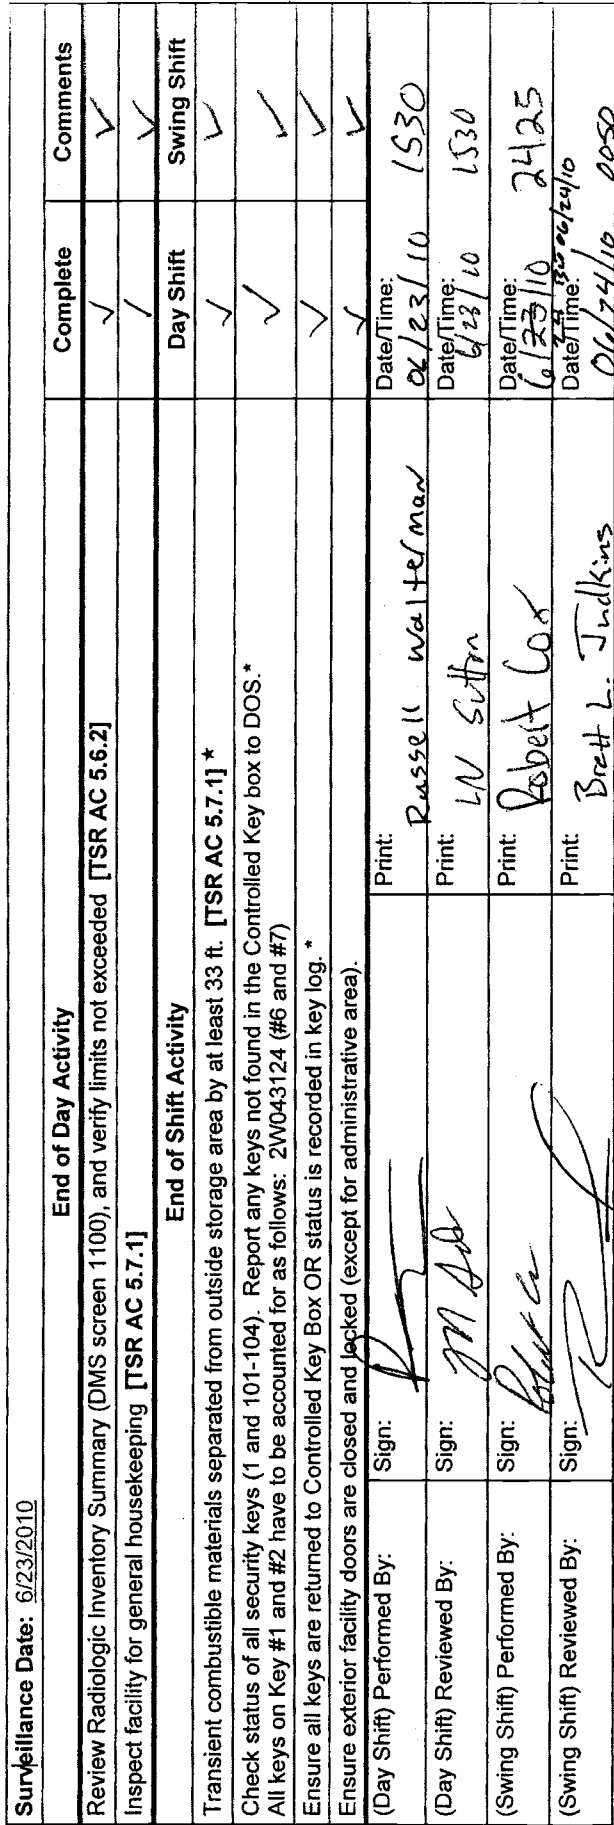 Surveillance Date: 6/23/2010
End of Day Activity Complete Comments
Review Radiologic Inventory Summary (DMS screen 1100), and verify limits not exceeded [TSR AC 5.6.2] ✓ ✓
Inspect facility for general housekeeping [TSR AC 5.7.1] ✓ ✓
End of Shift Activity Day Shift Swing Shift
Transient combustible materials separated from outside storage area by at least 33 ft. [TSR AC 5.7.1] * ✓ ✓
Check status of all security keys (1 and 101-104). Report any keys not found in the Controlled Key box to DOS.* ✓ ✓
All keys on Key #1 and #2 have to be accounted for as follows: 2W043124 (#6 and #7)
Ensure all keys are returned to Controlled Key Box OR status is recorded in key log. * ✓ ✓
Ensure exterior facility doors are closed and locked (except for administrative area). ✓ ✓
(Day Shift) Performed By: Sign: Print: Russell Walterman Date/Time: 06/23/10 1530
(Day Shift) Reviewed By: Sign: Print: LN Sutton Date/Time: 6/23/10 1530
(Swing Shift) Performed By: Sign: Print: Robert Cox Date/Time: 6/23/10 2425
24 06/24/10
(Swing Shift) Reviewed By: Sign: Print: Brett L. Judkins Date/Time: 06/24/10 0050